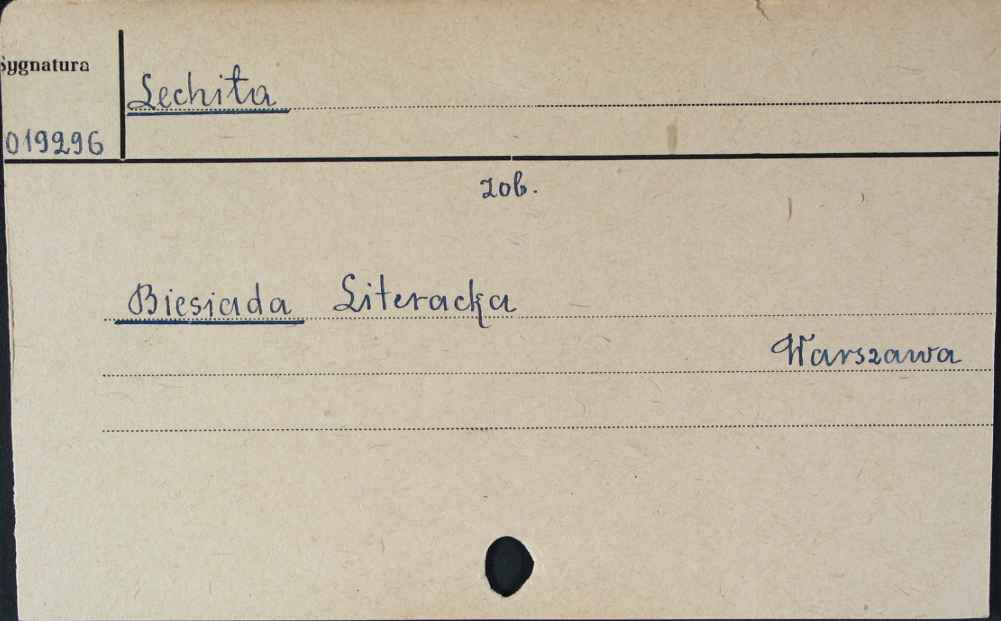 Sygnatura
Lechita
019296
zob.
Biesiada Literacka
Warszawa